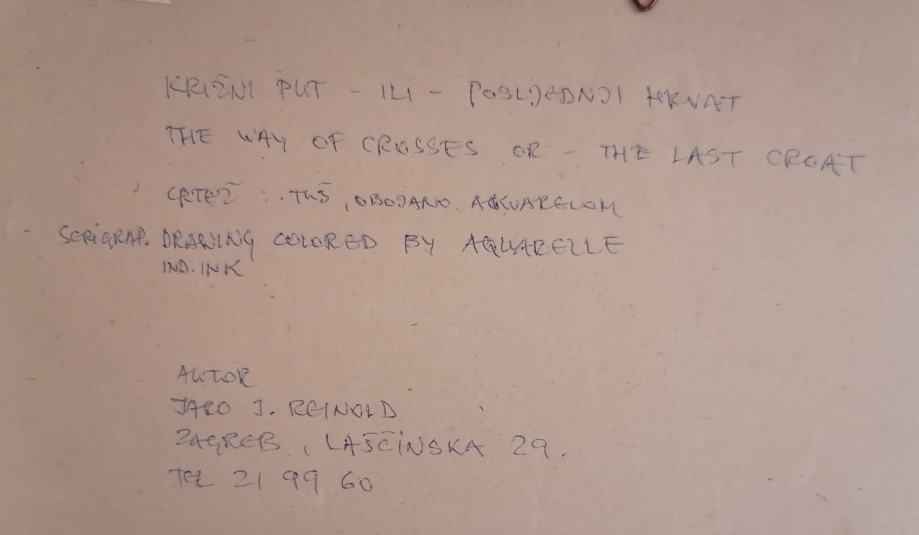 KRIŽNI PUT - ILI - POSLJEDNJI HRVAT
THE WAY OF CROSSES OR - THE LAST CROAT
CRTEŽ : TUŠ, OBOJANO AKVARELOM
SERIGRAP. DRAWING COLORED BY AQUARELLE
IND. INK
AUTOR
JARO J. REINOLD
ZAGREB, LAŠČINSKA 29.
TEL 21 99 60